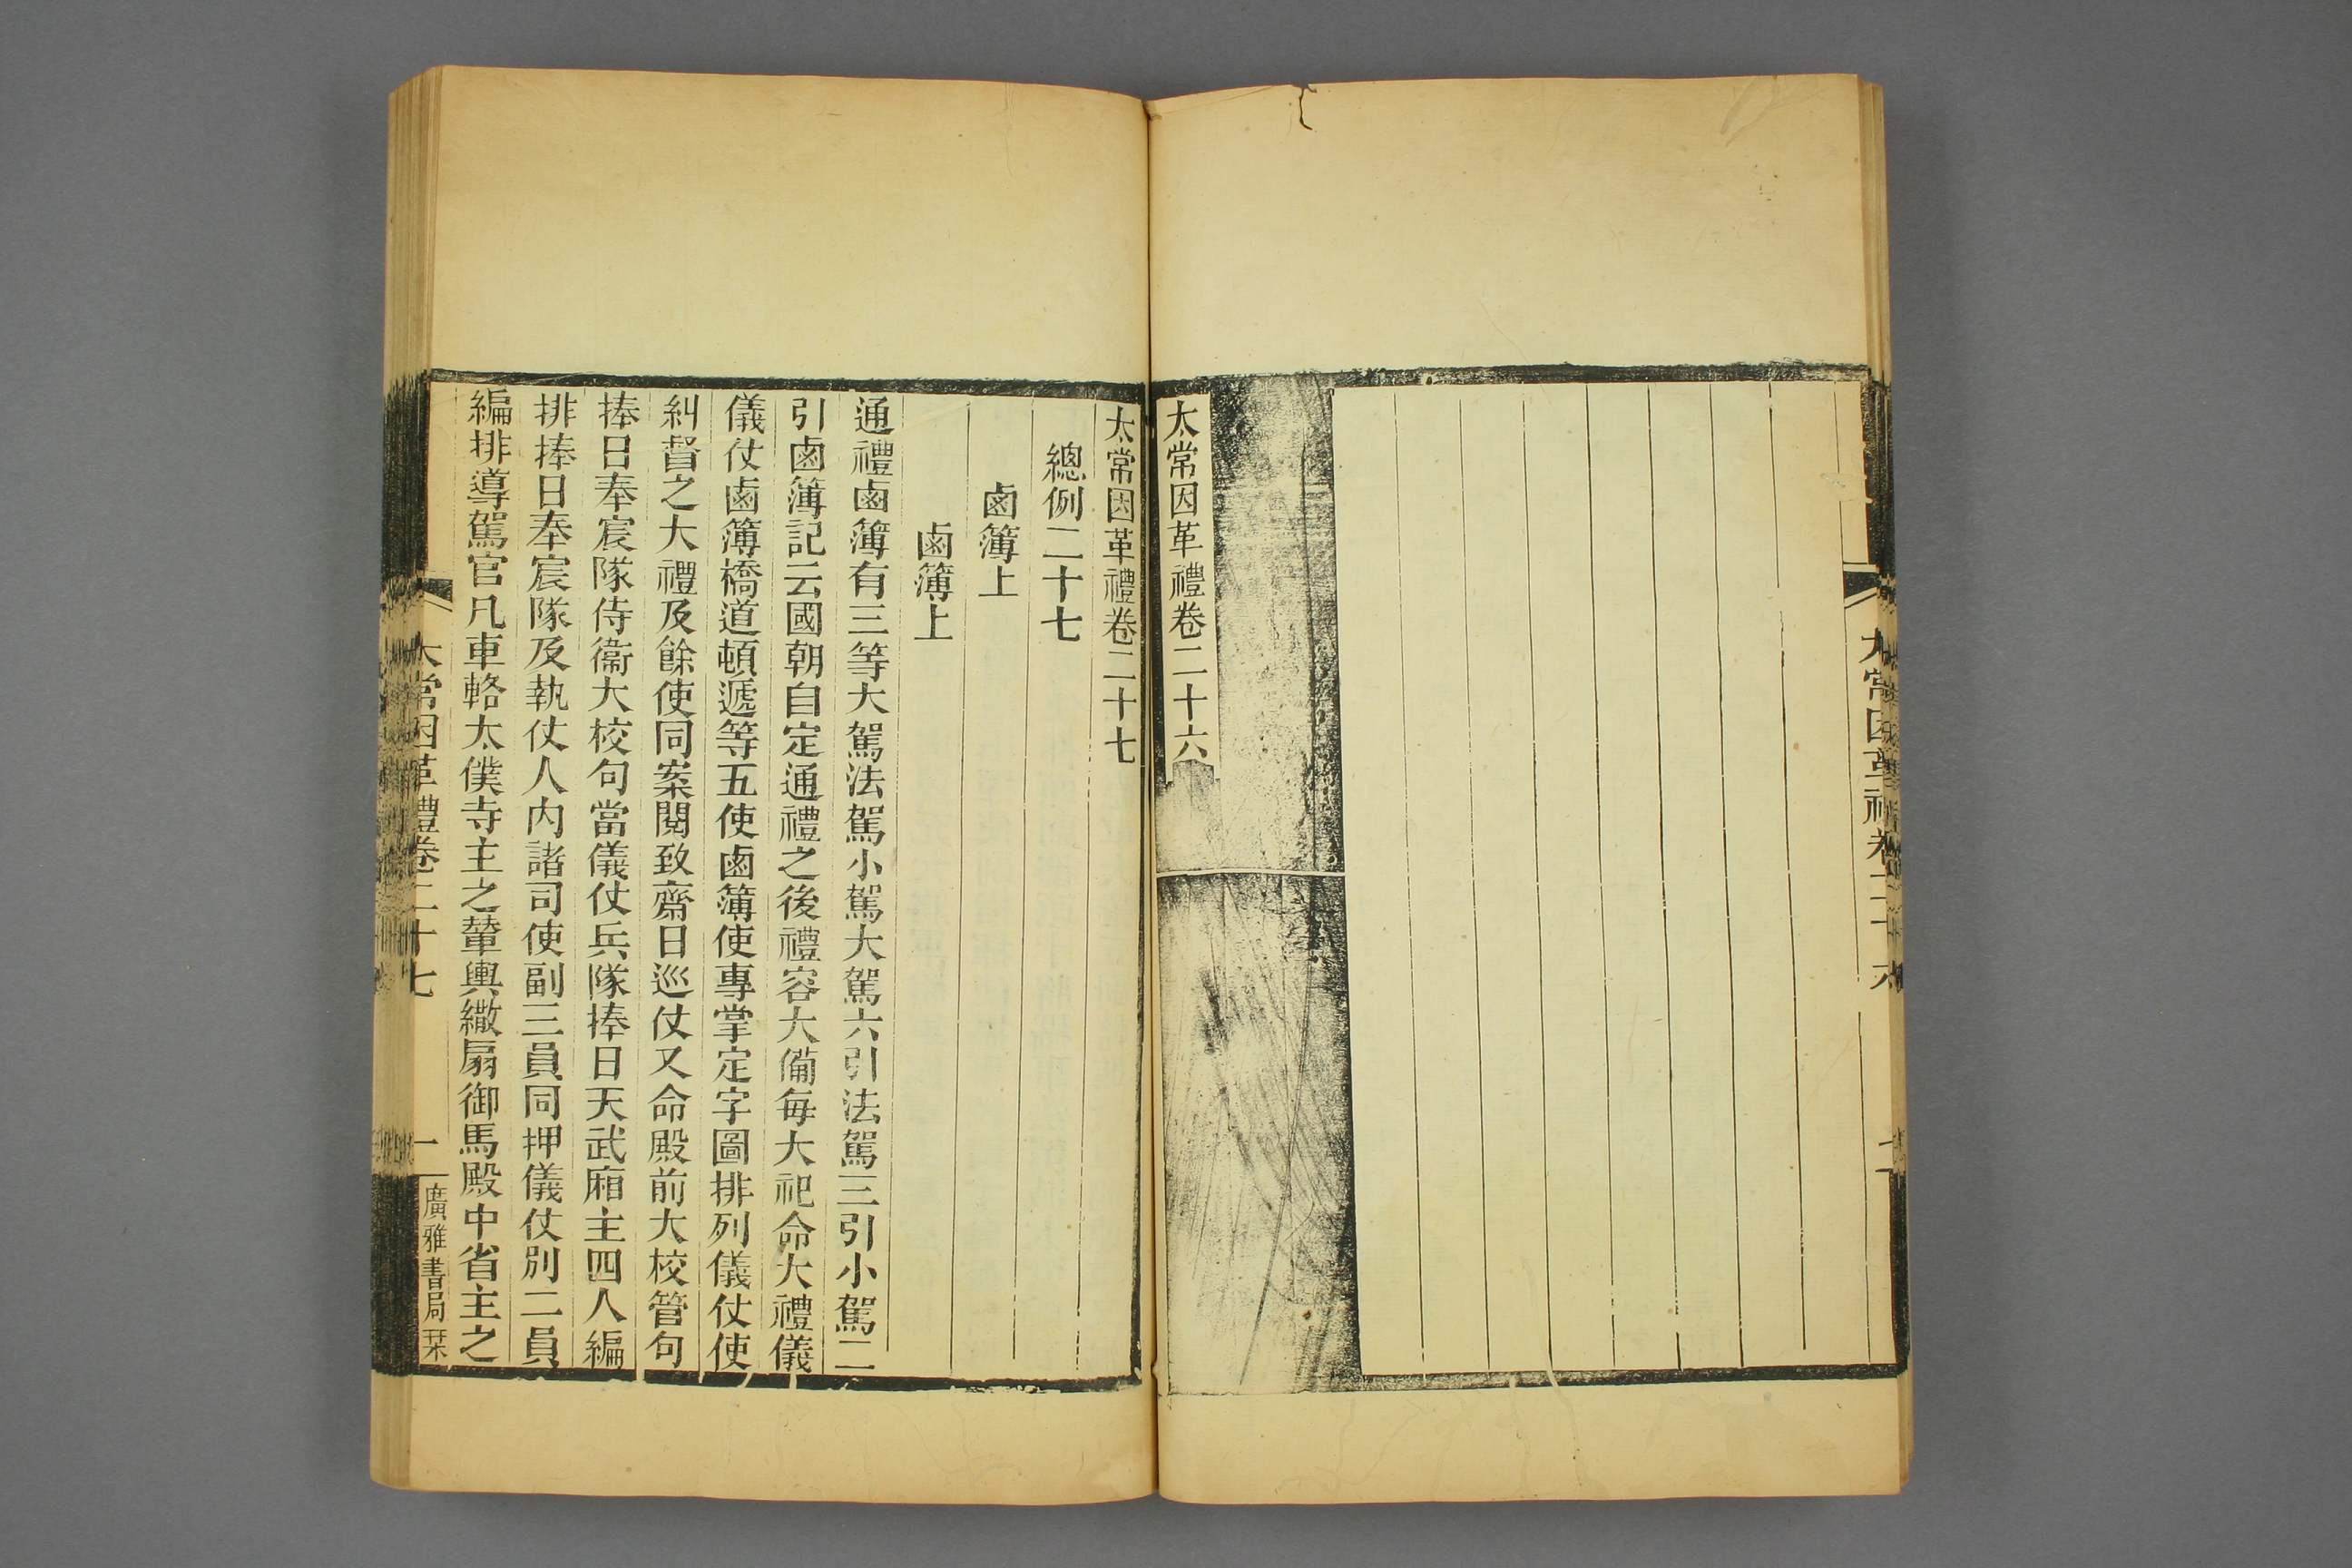 太常因革禮卷二十六
太常因革禮卷二十六
太常因革禮卷二十七
總例二十七
鹵簿上
鹵簿上
通禮鹵簿有三等大駕法駕小駕大駕六引法駕三引小駕二
引鹵簿記云國朝自定通禮之後禮容大備每大祀命大禮儀
儀仗鹵簿橋道頓遞等五使鹵簿使專掌定字圖排列儀仗使
糾督之大禮及餘使同案閱致齋日巡仗又命殿前大校管句
捧日奉宸隊侍衞大校句當儀仗兵隊捧日天武廂主四人編
排捧日奉宸隊及執仗人內諸司使副三員同押儀仗別二員
編排導駕官凡車輅太僕寺主之輦輿繖扇御馬殿中省主之
太常因革禮卷二十七
一
廣雅書局栞